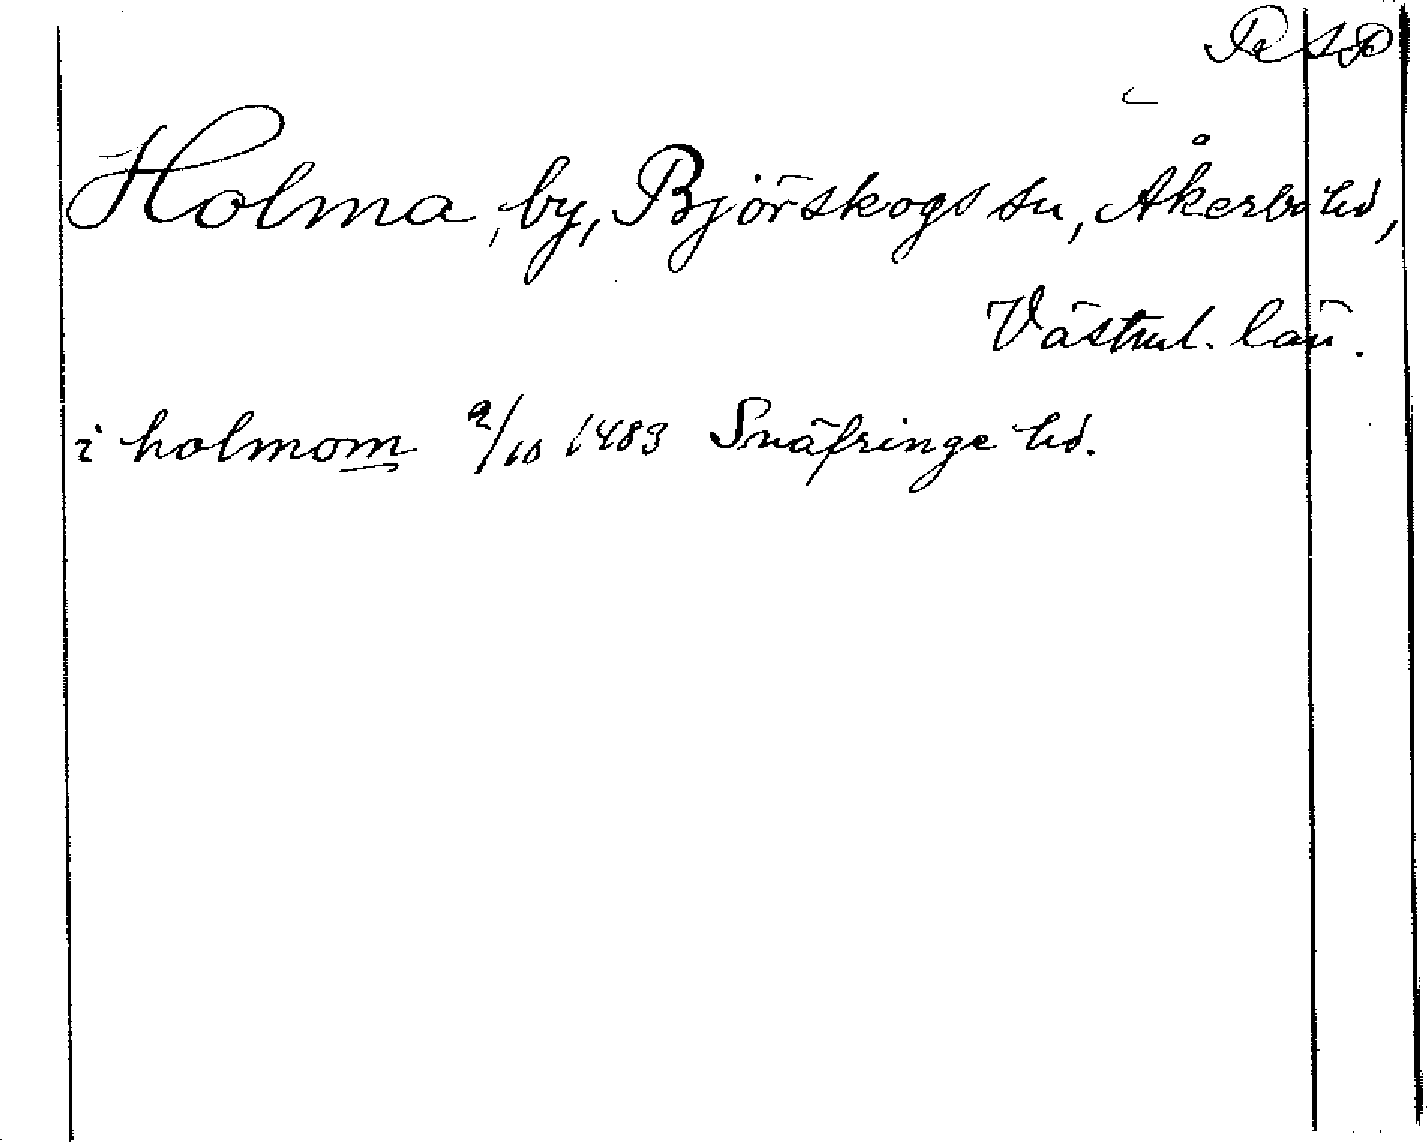 RAP
Holma, by, Björskogs sn, Åkerbo hd,
Västml. län.
i holmom 9/10 1483 Snäfringe hd.